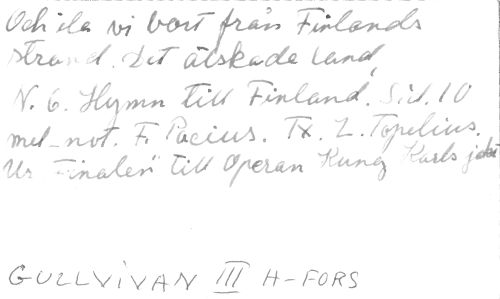 Och ila vi bort från Finlands
strand. Det älskade land,
N. 6. Hymn till Finland. Sid. 10
mel_not. F. Pacius. Tx. Z. Topelius.
Ur "Finalen" till Operan Kung Karls jakt
GULLVIVAN III H-FORS